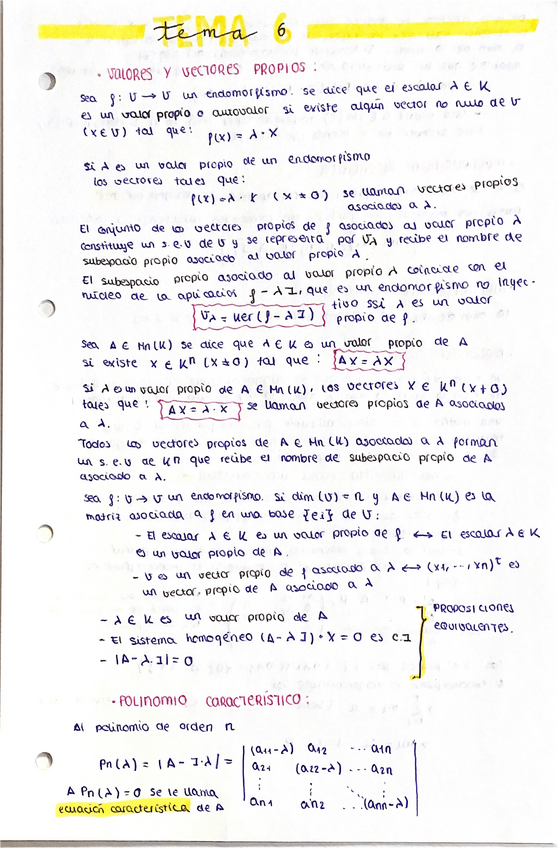 tema 6
TEMA
· VALORES Y VECTORES PROPIOS:
Sea f: U → U un endomorfismo. se dice que el escalar λ ∈ K
es un valor propio o autovalor si existe algún vector no nulo de U
(x ∈ U) tal que: f(x) = λ · x
Si λ es un valor propio de un endomorfismo
los vectores tales que:
f(x) = λ · x (x ≠ 0) se llaman vectores propios
asociados a λ.
El conjunto de los vectores propios de f asociados al valor propio λ
constituye un s.e.v de U y se representa por Uλ y recibe el nombre de
subespacio propio asociado al valor propio λ.
El subespacio propio asociado al valor propio λ coincide con el
núcleo de la aplicacios f - λI, que es un endomorfismo no inyec-
Uλ = Ker (f - λI) tivo ssi λ es un valor
propio de f.
Sea A ∈ Mn(K) se dice que λ ∈ K es un valor propio de A
si existe X ∈ Kⁿ (X ≠ 0) tal que : AX = λX
Si λ es un valor propio de A ∈ Mn(K), los vectores X ∈ Kⁿ (X ≠ 0)
tales que: AX = λ · X se llaman vectores propios de A asociados
a λ.
Todos los vectores propios de A ∈ Mn(K) asociados a λ forman
un s.e.v de Kⁿ que recibe el nombre de subespacio propio de A
asociado a λ.
Sea f: U → U un endomorfismo. Si dim(U) = n y A ∈ Mn(K) es la
matriz asociada a f en una base {ei} de U:
- El escalar λ ∈ K es un valor propio de f ↔ El escalar λ ∈ K
es un valor propio de A.
- U es un vector propio de f asociado a λ ↔ (x1, ..., xn)ᵗ es
un vector propio de A asociado a λ
- λ ∈ K es un valor propio de A
- El sistema homogéneo (A - λI) · X = 0 es C.I
- |A - λ.I| = 0
PROPOSICIONES
EQUIVALENTES.
· POLINOMIO CARACTERÍSTICO:
Al polinomio de orden n
Pn(λ) = |A - I·λ| = | (a11-λ) a12 ... a1n
a21 (a22-λ) ... a2n
⋮ ⋮ ⋮
an1 an2 ... (ann-λ) |
A Pn(λ) = 0 se le llama
ecuación característica de A